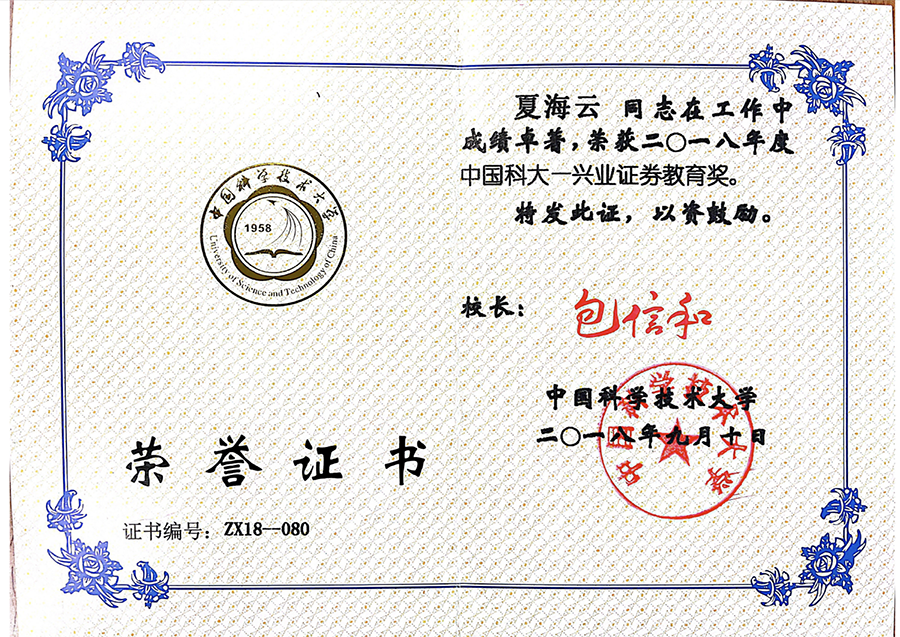 中国科学技术大学
1958
University of Science and Technology of China
荣誉证书
证书编号：ZX18--080
夏海云 同志在工作中
成绩卓著，荣获二〇一八年度
中国科大一兴业证券教育奖。
特发此证，以资鼓励。
校长：包信和
中国科学技术大学
二〇一八年九月十日
中国科学技术大学